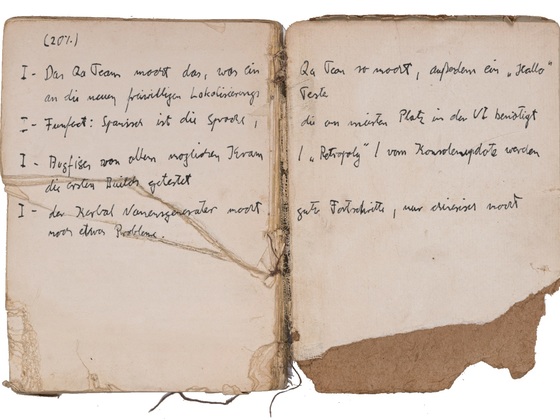 (20%)
I - Das Qa Team macht das, was ein Qa Team so macht, außerdem ein „Hallo"
an die neuen freiwilligen Lokalisierungs Teste
I - Funfact: Spanisch ist die Sprache, die am meisten Platz in der UI benötigt
I - Bugfixes von allem möglichen Kram / „Retropoly" / vom Konsolenupdate werden
die ersten Builds getestet
I - der Kerbal Namensgenerator macht gute Fortschritte, nur macht
noch etwas Probleme.